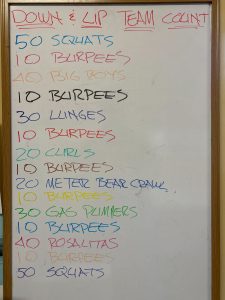 DOWN & UP TEAM COUNT
50 SQUATS
10 BURPEES
40 BIG BOYS
10 BURPEES
30 LUNGES
10 BURPEES
20 CURLS
10 BURPEES
20 METER BEAR CRAWL
10 BURPEES
30 GAS PUMPERS
10 BURPEES
40 ROSALITAS
10 BURPEES
50 SQUATS